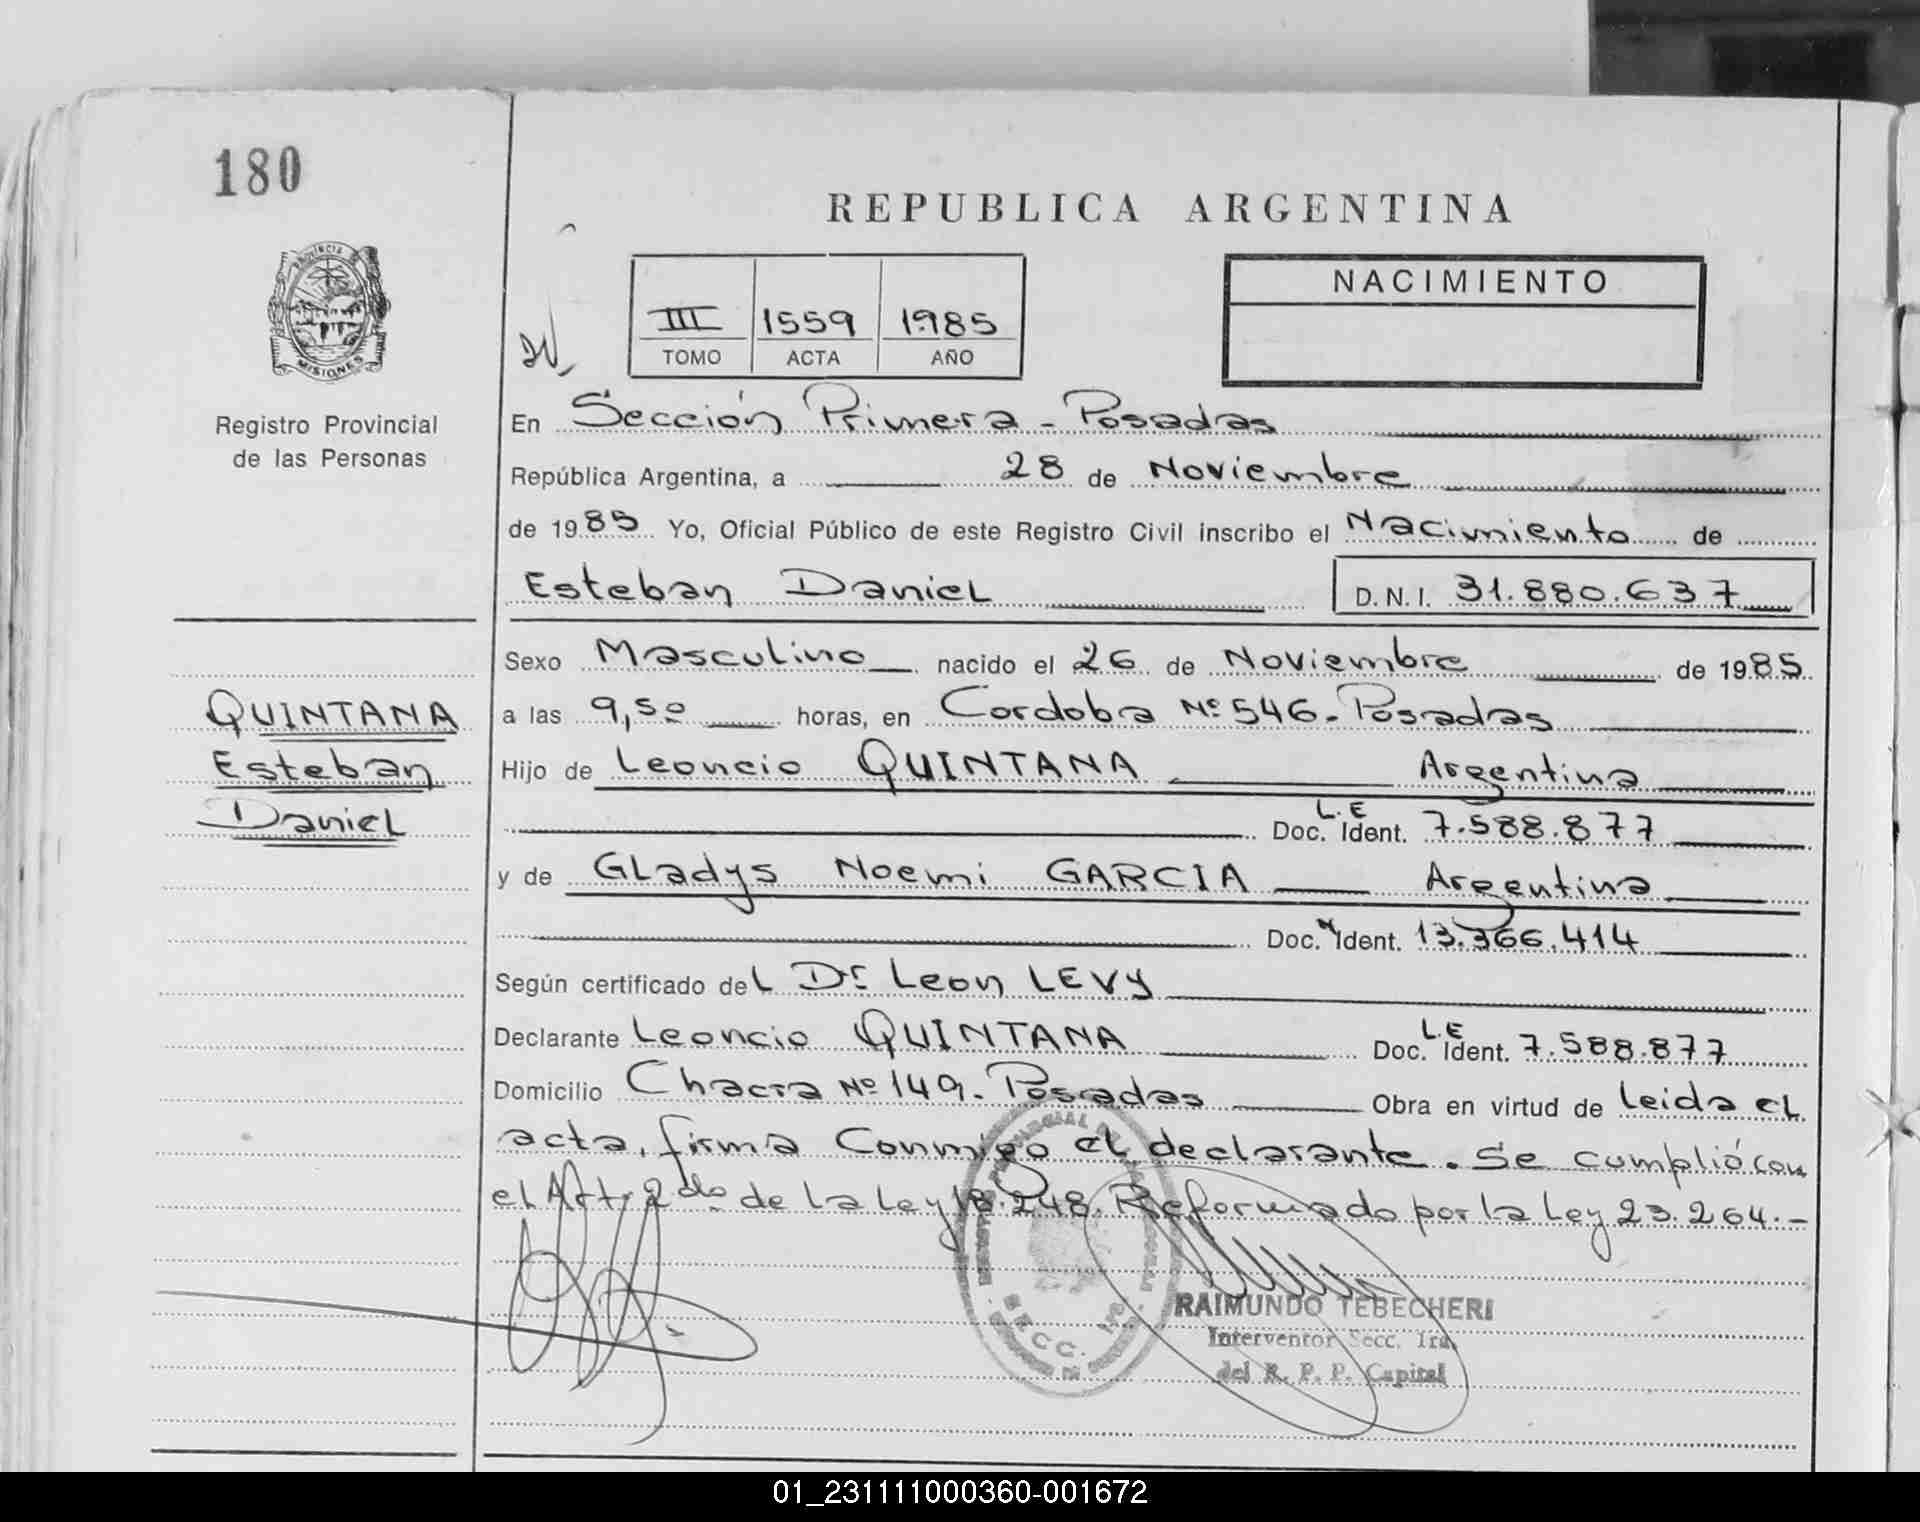 180
REPUBLICA ARGENTINA
PROVINCIA DE
MISIONES
Registro Provincial
de las Personas
III 1559 1985
TOMO ACTA AÑO
NACIMIENTO
En Sección Primera - Posadas
República Argentina, a 28 de Noviembre
de 1985 Yo, Oficial Público de este Registro Civil inscribo el Nacimiento de
Esteban Daniel D.N.I. 31.880.637
Sexo Masculino nacido el 26 de Noviembre de 1985
QUINTANA
Esteban
Daniel
a las 9,50 horas, en Cordoba Nº 546. Posadas
Hijo de Leoncio QUINTANA Argentina
L.E
Doc. Ident. 7.588.877
y de Gladys Noemi GARCIA Argentina
Doc. Ident. 13.366.414
Según certificado del Dr Leon LEVY
Declarante Leoncio QUINTANA Doc. L.E Ident. 7.588.877
Domicilio Chacra Nº 149. Posadas Obra en virtud de leida el
acta, firma Conmigo el declarante. Se cumplió con
el Art. 2do. de la Ley 18.248. Reformado por la Ley 23.264.-
SECC. 1ra
RAIMUNDO TEBECHERI
Interventor Secc. 1ra.
del R. P. P. Capital
01_231111000360-001672